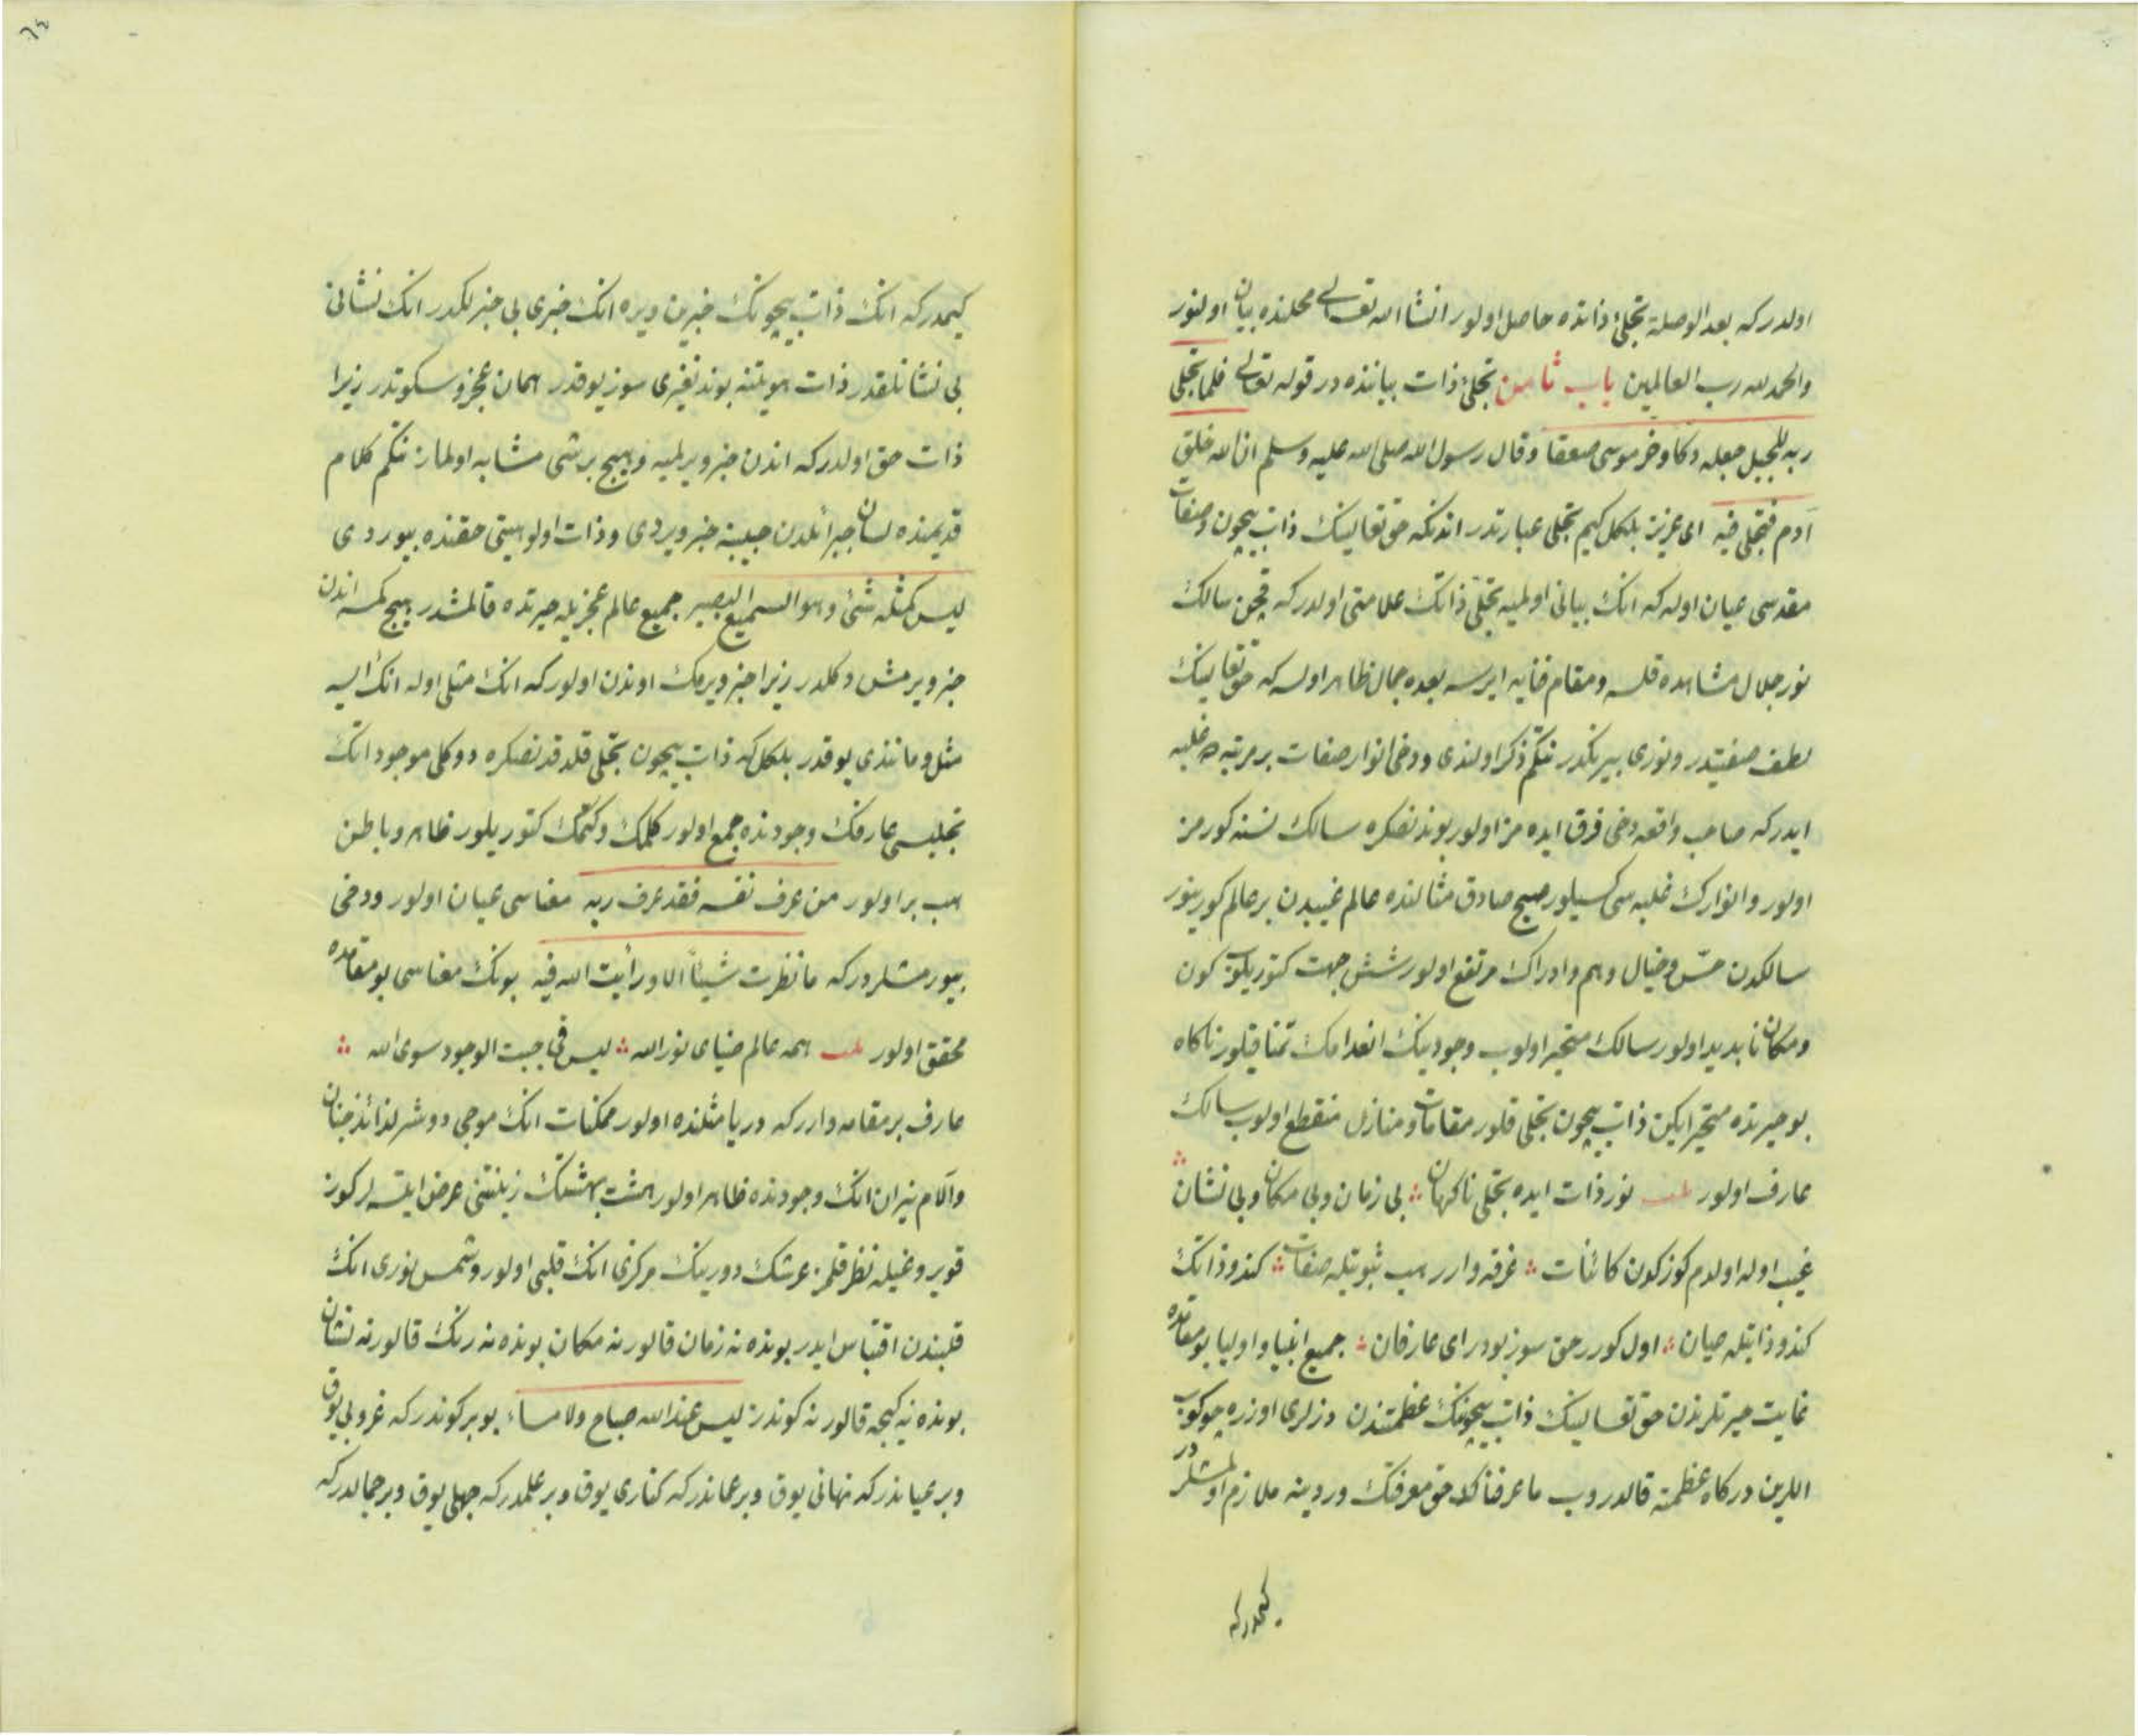 اولدر كه بعد الوصلة تجلئ ذاتده حاصل اولور انشاالله تعالى محلنده بيان اولنور
والحمد لله رب العالمين باب ثامن تجلئ ذات بياننده در قوله تعالى فلما تجلى
ربه للجبل جعله دكا وخر موسى صعقا وقال رسول الله صلى الله عليه وسلم ان الله خلق
آدم فتجلى فيه اى عزيز بلكل كيم تجلى عبارتدر اندنكه حق تعالينك ذات بيچون وصفات
مقدسى عيان اوله كه انك بيانى اولميه تجلئ ذاتك علامتى اولدر كه قچن سالك
نور جلال مشاهده قلسه ومقام فنايه ايرسه بعده جمال ظاهر اولسه كه حق تعالينك
لطف صفتيدر ونورى بيرنكدر نتكم ذكر اولندى ودخى انوار صفات بر مرتبه ده غلبه
ايدر كه صاحب واقعه دخى فرق ايده مز اولور بوندنصكره سالك نسنه كورمز
اولور وانوارك غلبه سى كسيلور صبح صادق مثالنده عالم غيبدن بر عالم كورينور
سالكدن حس وخيال وهم وادراك مرتفع اولور شش جهت كتوريلوب كون
ومكان نابديد اولور سالك متحير اولوب وجودينك انعدامك تمنا قيلور ناكاه
بو حيرتده متحير ايكن ذات بيچون تجلى قلور مقامات ومنازل منقطع اولوب سالك
عارف اولور نور ذات ايده تجلى ناكهان بى زمان وبى مكان وبى نشان
غيب اوله اولدم كوزكدن كائنات غرقه وارر هب ثبوتيله صفات كندو ذاتك
كندو ذاتيله عيان اول كورر حق سوز بودر اى عارفان جميع انبيا واوليا بو مقامده
غايت حيرتلرندن حق تعالينك ذات بيچونك عظمتندن دزلرى اوزره چوكوب
اللرين دركاه عظمته قالدروب ما عرفناك حق معرفتك وردينه ملازم اولمشلردر
كيمدركه
كيمدركه انك ذات بيچونك خبرين ويره انك خبرى بى خبرلكدر انك نشانى
بى نشانلقدر ذات هويتنه بوندنغيرى سوز يوقدر همان عجز وسكوتدر زيرا
ذات حق اولدركه اندن خبر ويرلميه وهيچ بر شى مشابه اولماز نتكم كلام
قديمنده لسان جبرائلدن حبيبنه خبر ويردى وذات اولوهيتى حقنده بيوردى
ليس كمثله شئ وهو السميع البصير جميع عالم عجزيله حيرتده قالمشدر هيچ كمسه اندن
خبر ويرمش دكلدر زيرا خبر ويرمك اوندن اولوركه انك مثلى اوله انك ايسه
مثل ومانندى يوقدر بلكل كه ذات بيچون تجلى قلدقدنصكره دوكلى موجود انك
تجليسى عارفك وجودنده جمع اولور كلمك وكتمك كتوريلور ظاهر وباطن
هب بر اولور من عرف نفسه فقد عرف ربه معناسى عيان اولور ودخى
بيورمشلردركه ما نظرت شيئا الا ورأيت الله فيه بونك معناسى بو مقامده
محقق اولور همه عالم ضياى نور الله ليس فى جبت الوجود سوى الله
عارف بر مقامه وارر كه دريا مثلنده اولور ممكنات انك موجى دوشر لذائذ جنان
وآلام نيران انك وجودنده ظاهر اولور هشت بهشتك زينتنى عرض ايتسه لر كوز
قويروغيله نظر قلمز عرشك دورينك مركزى انك قلبى اولور وشمس نورى انك
قلبندن اقتباس ايدر بونده نه زمان قالور نه مكان بونده نه رنك قالور نه نشان
بونده نه كيجه قالور نه كوندز ليس عند الله صباح ولا مساء بو بر كوندر كه غروبى يوق
وبر عياندركه نهانى يوق وبر عماندركه كنارى يوق وبر علمدركه جهلى يوق وبر جمالدركه